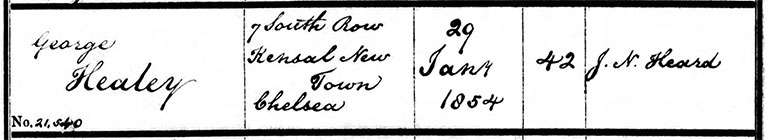 George
Healey
No. 21,540
7 South Row
Kensal New
Town
Chelsea
29
Jany
1854
42
J. N. Heard